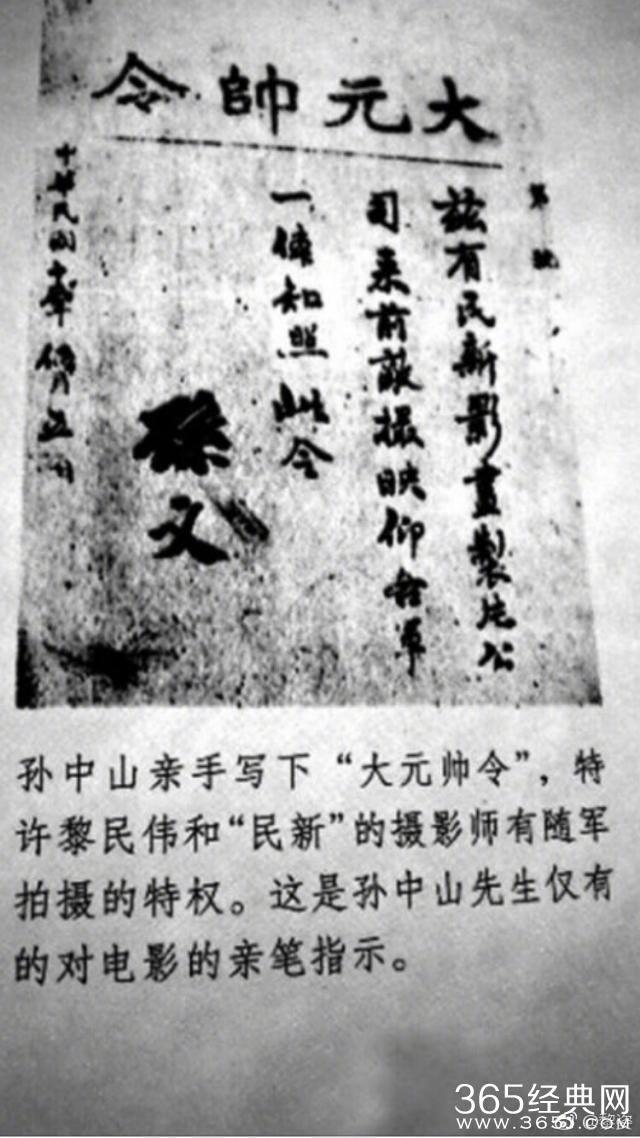 大元帥令
第 號
茲有民新影畫製片公
司来前敵攝映仰各軍
一体知照此令
孫文
中華民國
孙中山亲手写下“大元帅令”，特
许黎民伟和“民新”的摄影师有随军
拍摄的特权。这是孙中山先生仅有
的对电影的亲笔指示。
365经典网
www.365J .COM